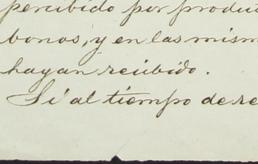 percibido por produc
bonos, y en las mism
hayan recibido.
Si al tiempo de re